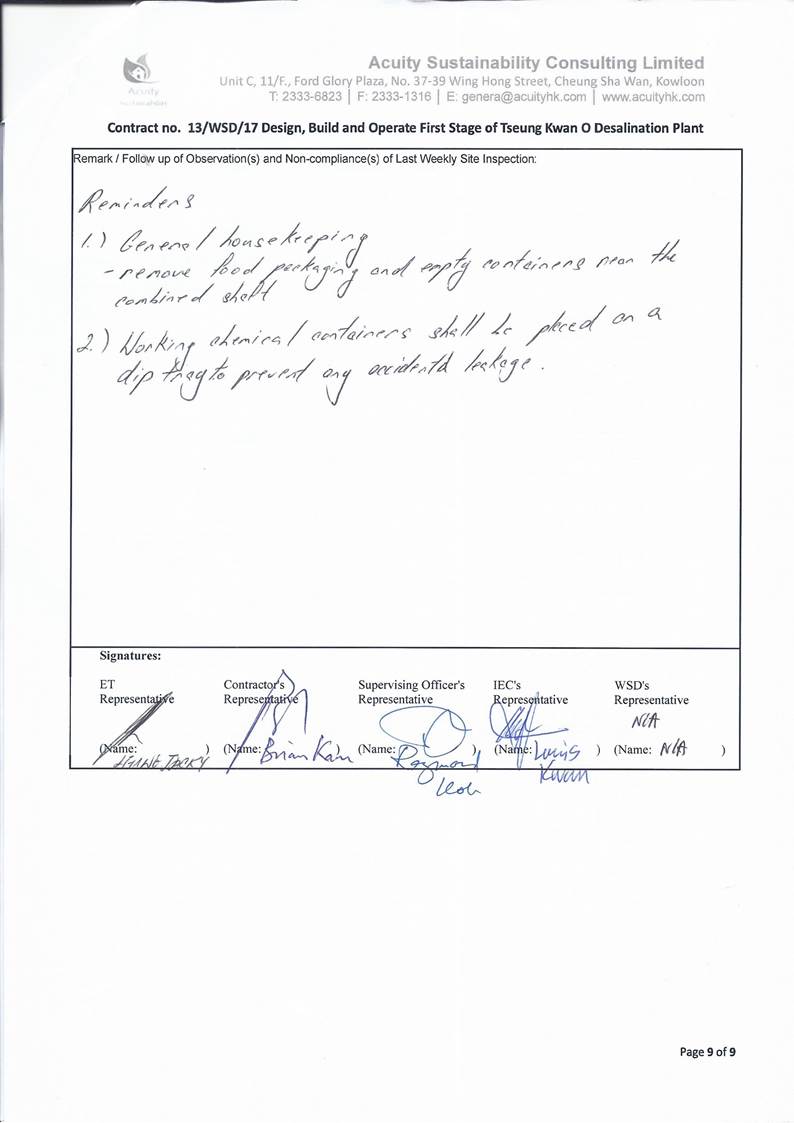 Acuity Sustainability Consulting Limited
Unit C, 11/F., Ford Glory Plaza, No. 37-39 Wing Hong Street, Cheung Sha Wan, Kowloon
T: 2333-6823 | F: 2333-1316 | E: genera@acuityhk.com | www.acuityhk.com
Acuity
Sustainability
Contract no. 13/WSD/17 Design, Build and Operate First Stage of Tseung Kwan O Desalination Plant
Remark / Follow up of Observation(s) and Non-compliance(s) of Last Weekly Site Inspection:
Reminders
1.) General housekeeping
- remove food packaging and empty containers near the
combined shaft
2.) Working chemical containers shall be placed on a
dip tray to prevent any accidental leakage.
Signatures:
ET Representative
Contractor's Representative
Supervising Officer's Representative
IEC's Representative
WSD's Representative
N/A
(Name: JACKY)
(Name: Brian Kam)
(Name: Raymond)
(Name: Louis Kwan)
(Name: N/A)
Page 9 of 9